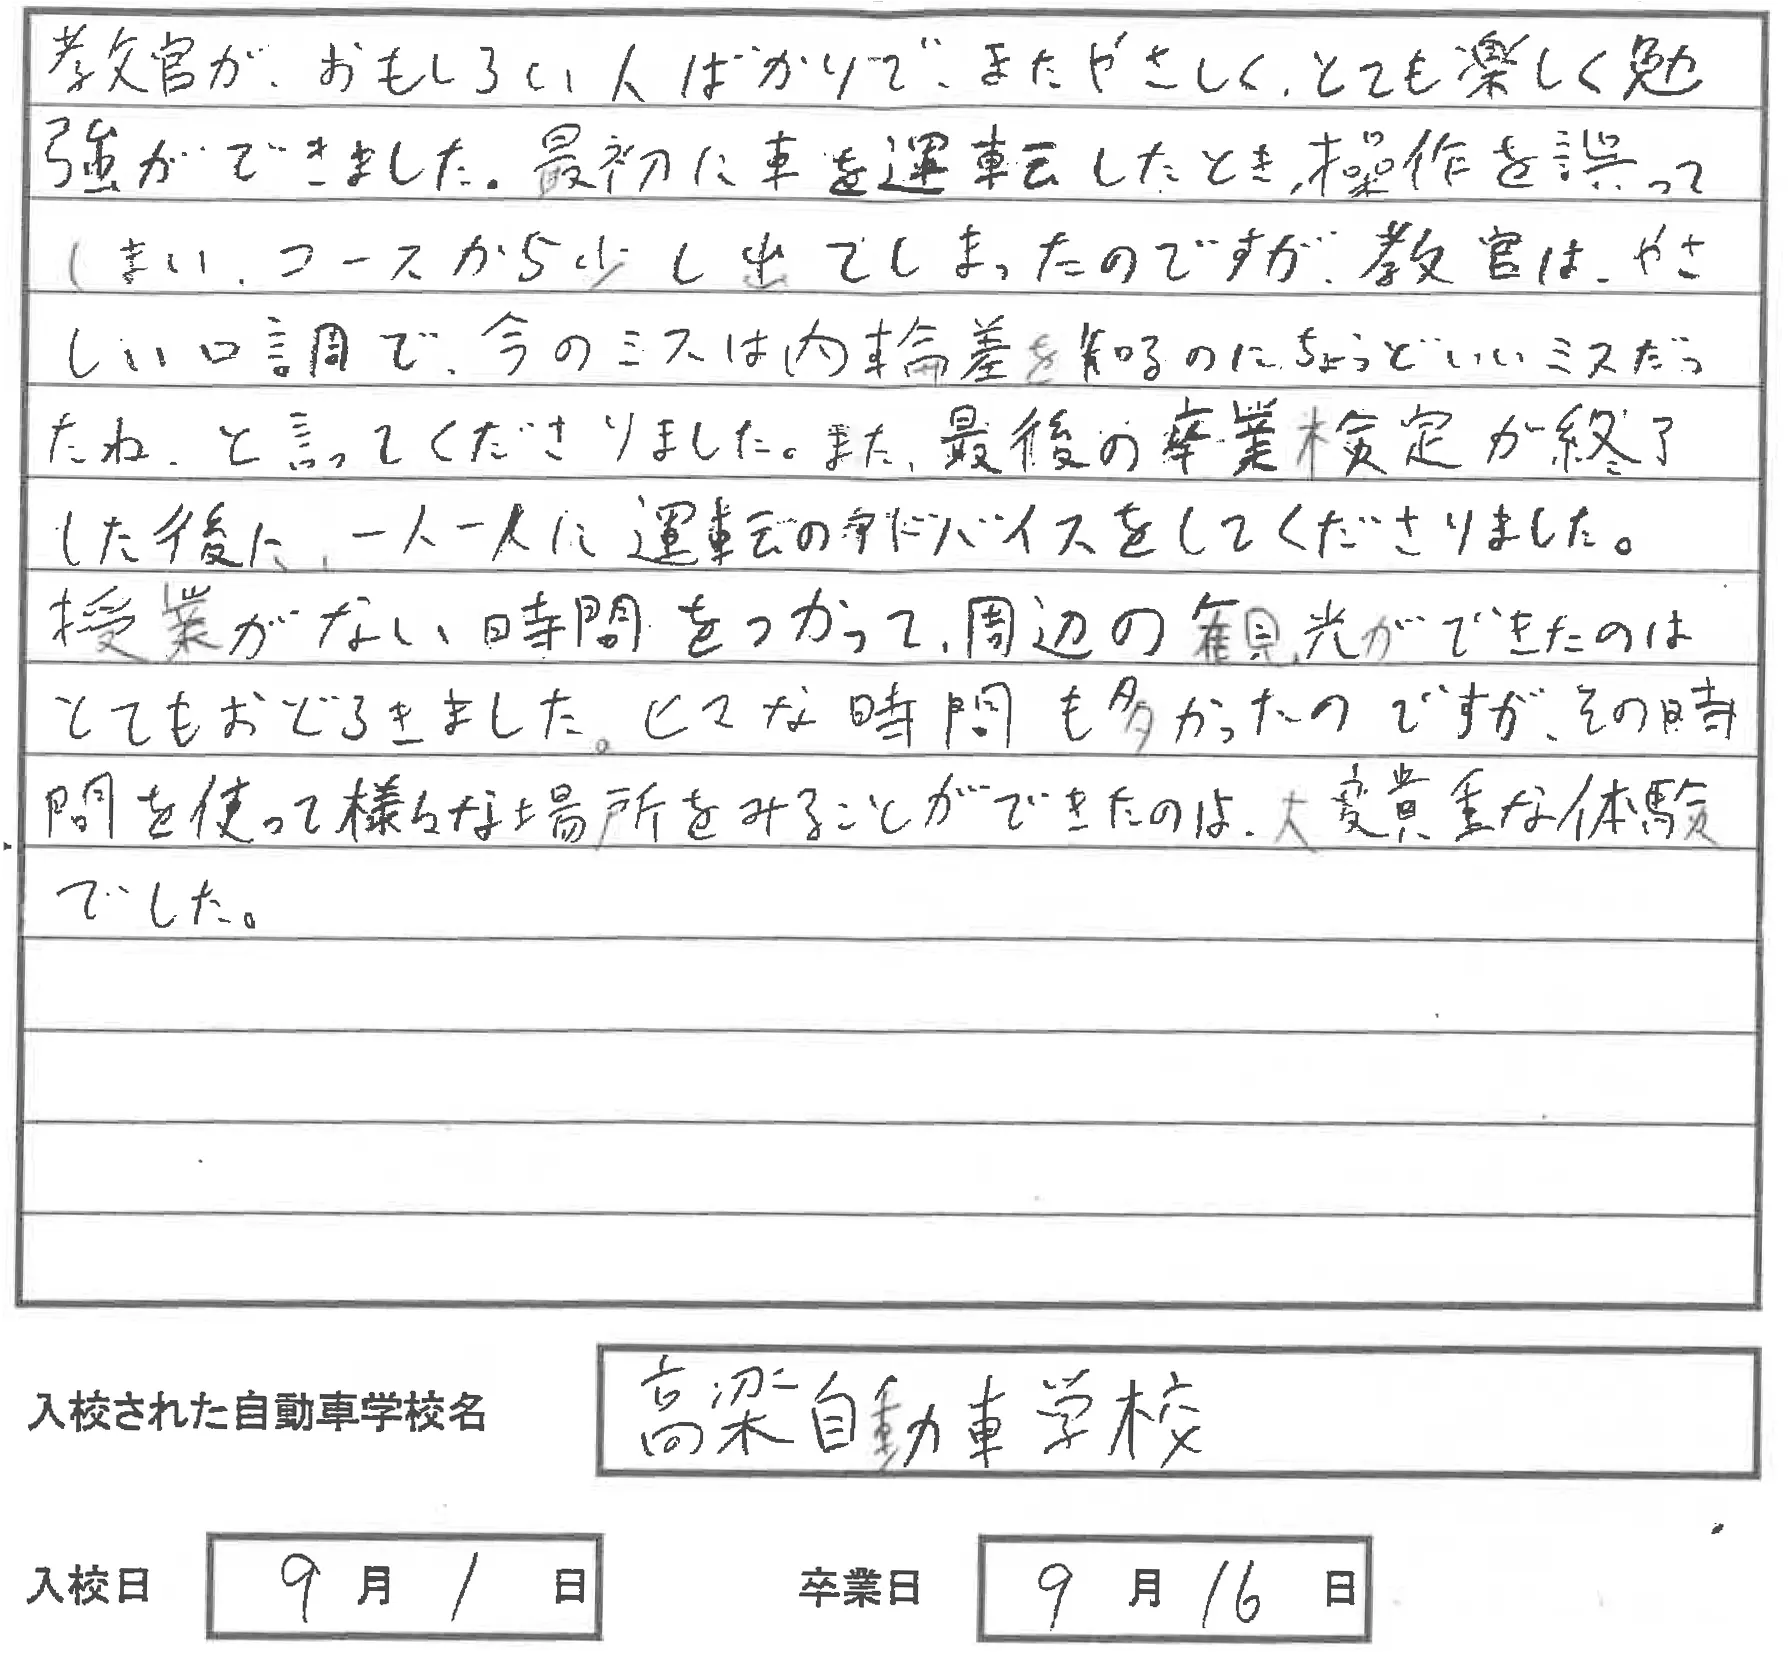 教官が、おもしろい人ばかりで、またやさしく、とても楽しく勉
強ができました。最初に車を運転したとき、操作を誤って
しまい、コースから少し出てしまったのですが、教官は、やさ
しい口調で、今のミスは内輪差を知るのにちょうどいいミスだっ
たね、と言ってくださりました。また、最後の卒業検定が終了
した後に、一人一人に運転のアドバイスをしてくださりました。
授業がない時間をつかって、周辺の観光ができたのは
とてもおどろきました。ヒマな時間も多かったのですが、その時
間を使って様々な場所をみることができたのは、大変貴重な体験
でした。
入校された自動車学校名 高梁自動車学校
入校日 9月1日 卒業日 9月16日